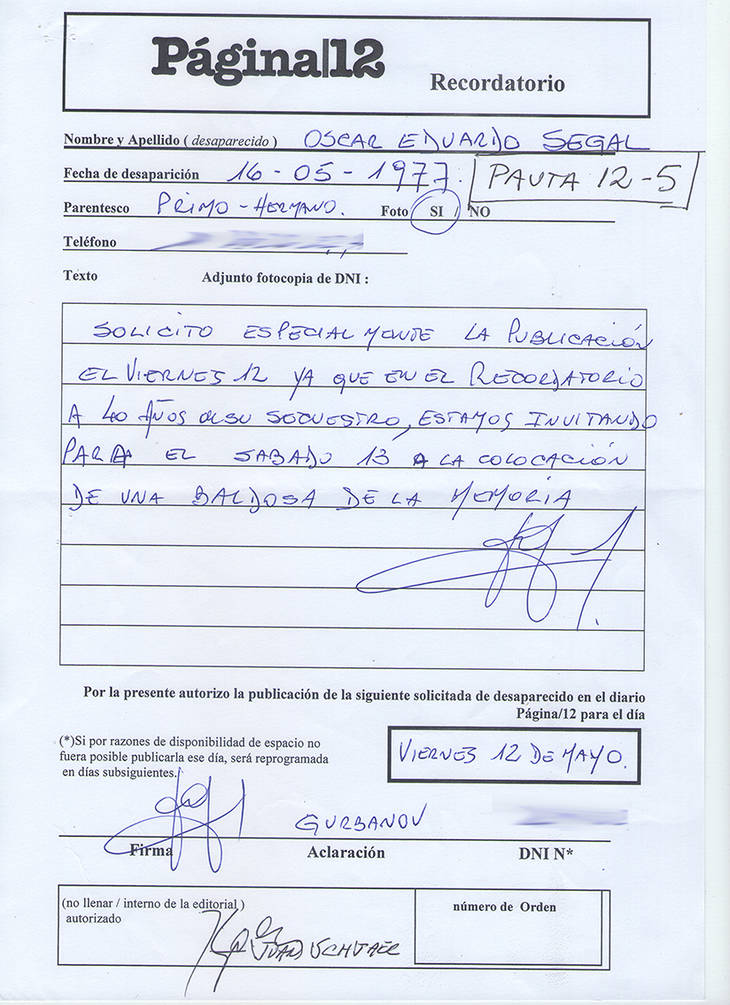 Página|12
Recordatorio
Nombre y Apellido ( desaparecido ) OSCAR EDUARDO SEGAL
Fecha de desaparición 16-05-1977.
PAUTA 12-5
Parentesco PRIMO-HERMANO. Foto SI / NO
Teléfono
Texto Adjunto fotocopia de DNI :
SOLICITO ESPECIALMENTE LA PUBLICACIÓN
EL VIERNES 12 YA QUE EN EL RECORDATORIO
A 40 AÑOS DE SU SECUESTRO, ESTAMOS INVITANDO
PARA EL SABADO 13 A LA COLOCACIÓN
DE UNA BALDOSA DE LA MEMORIA
Por la presente autorizo la publicación de la siguiente solicitada de desaparecido en el diario
Página/12 para el día
(*)Si por razones de disponibilidad de espacio no
fuera posible publicarla ese día, será reprogramada
en días subsiguientes.
VIERNES 12 DE MAYO.
GURBANOV
Firma Aclaración DNI N*
(no llenar / interno de la editorial )
autorizado
número de Orden